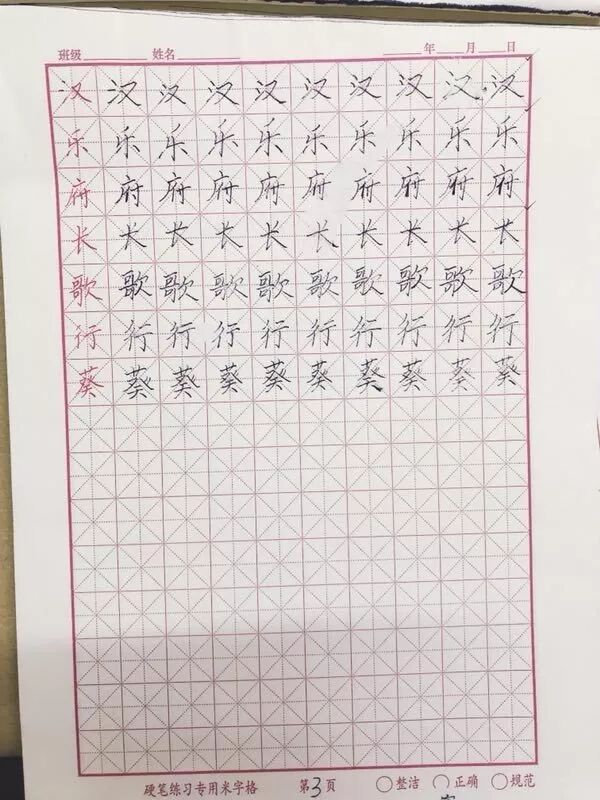 班级 姓名 年 月 日
汉 汉 汉 汉 汉 汉 汉 汉 汉 汉
乐 乐 乐 乐 乐 乐 乐 乐 乐 乐
府 府 府 府 府 府 府 府 府 府
长 长 长 长 长 长 长 长 长 长
歌 歌 歌 歌 歌 歌 歌 歌 歌 歌
行 行 行 行 行 行 行 行 行 行
葵 葵 葵 葵 葵 葵 葵 葵 葵 葵
硬笔练习专用米字格 第3页 整洁 正确 规范